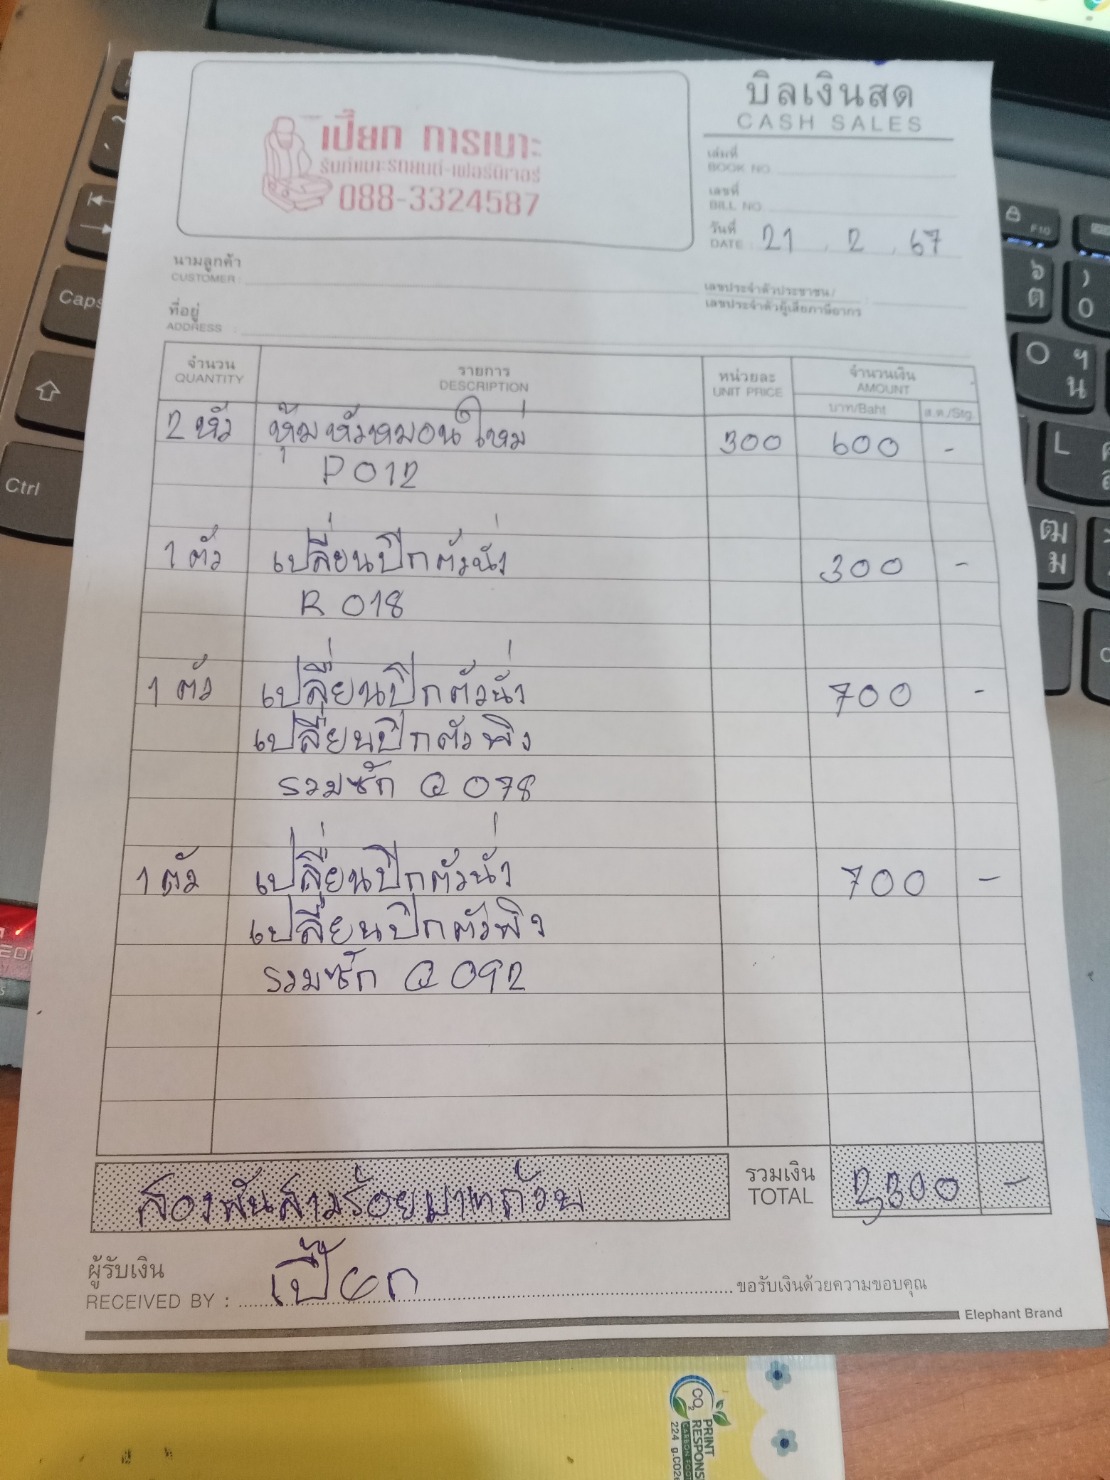 บิลเงินสด
CASH SALES
เปี๊ยก การเบาะ
รับทำเบาะรถยนต์-เฟอร์นิเจอร์
088-3324587
เล่มที่
BOOK NO.
เลขที่
BILL NO.
วันที่
DATE 21 . 2 . 67
นามลูกค้า
CUSTOMER :
เลขประจำตัวประชาชน/
เลขประจำตัวผู้เสียภาษีอากร :
ที่อยู่
ADDRESS :
จำนวน รายการ หน่วยละ จำนวนเงิน
QUANTITY DESCRIPTION UNIT PRICE AMOUNT
บาท/Baht ส.ต./Stg.
2 หัว หุ้มหัวหมอนใหม่ 300 600 -
P 012
1 ตัว เปลี่ยนปีกตัวนั่ง 300 -
R 018
1 ตัว เปลี่ยนปีกตัวนั่ง 700 -
เปลี่ยนปีกตัวพิง
รวมซัก Q 078
1 ตัว เปลี่ยนปีกตัวนั่ง 700 -
เปลี่ยนปีกตัวพิง
รวมซัก Q 092
สองพันสามร้อยบาทถ้วน
รวมเงิน
TOTAL 2,300 -
ผู้รับเงิน
RECEIVED BY : เปี๊ยก ขอรับเงินด้วยความขอบคุณ
Elephant Brand
Caps
Ctrl
F10
CO2
PRINT